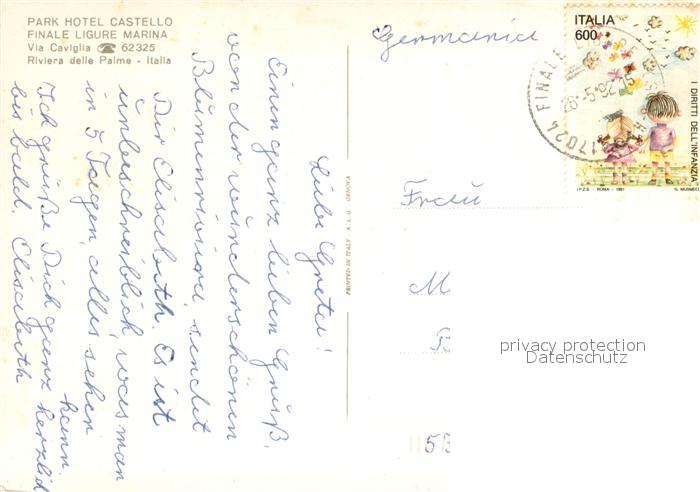 PARK HOTEL CASTELLO
FINALE LIGURE MARINA
Via Caviglia ☎ 62325
Riviera delle Palme - Italia
Liebe Greta!
Einen ganz lieben Gruß,
von der wunderschönen
Blumenriviera, sendet
Dir Elisabeth. Es ist
unbeschreiblich, was man
in 5 Tagen, alles sehen
kann.
Ich grüße Dich ganz herzlich
bis bald. Elisabeth
PRINTED IN ITALY A. L. G. GENOVA
Germania
ITALIA
600
I DIRITTI DELL'INFANZIA
I.P.Z.S. - ROMA - 1991 G. MUSMECI
17024 FINALE
26-5-92
Frau
M
privacy protection
Datenschutz
5